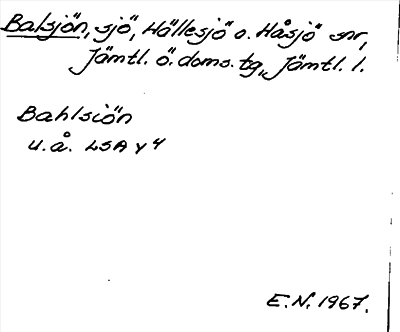 Balsjön, sjö, Hällesjö o. Håsjö snr,
Jämtl. ö. doms. tg, Jämtl. l.
Bahlsiön
u.å. LSA Y 4
E.N. 1967.